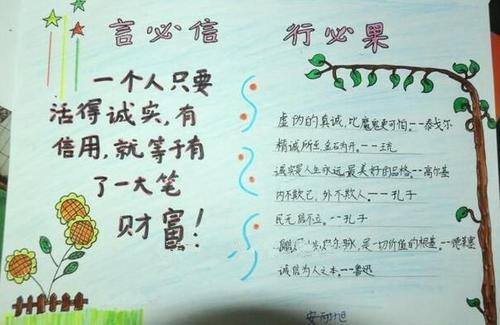 言必信 行必果
一个人只要
活得诚实,有
信用,就等于有
了一大笔
财富!
虚伪的真诚,比魔鬼更可怕。--泰戈尔
精诚所至 金石为开。--王充
诚实是人生永远最美好的品格。--高尔基
内不欺己,外不欺人。--孔子
民无信不立。--孔子
是一切价值的根基。--德莱塞
诚信为人之本。--鲁迅